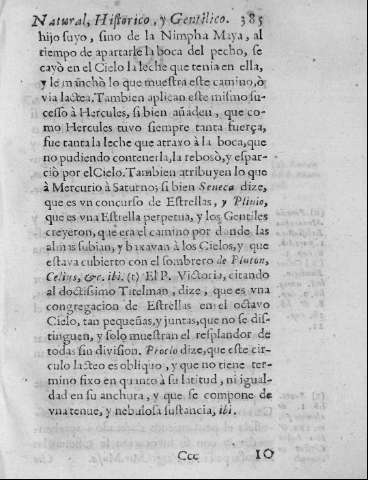 Natural, Historico, y Gentilico. 385
hijo suyo, sino de la Nimpha Maya, al
tiempo de apartarle la boca del pecho, se
cayò en el Cielo la leche que tenia en ella,
y le manchò lo que muestra este camino, ò
via lactea. Tambien aplican este mismo su-
cesso à Hercules, si bien añaden, que co-
mo Hercules tuvo siempre tanta fuerça,
fue tanta la leche que atraxo à la boca, que
no pudiendo contenerla, la rebosò, y espar-
ciò por el Cielo. Tambien atribuyen lo que
à Mercurio à Saturno; si bien Seneca dize,
que es vn concurso de Estrellas, y Plinio,
que es vna Estrella perpetua, y los Gentiles
creyeron, que era el camino por donde las
almas subian, y baxavan à los Cielos, y que
estava cubierto con el sombrero de Pluton,
Celius, &c. ibi. (t) El P. Victoria, citando
al doctissimo Titelman, dize, que es vna
congregacion de Estrellas en el octavo
Cielo, tan pequeñas, y juntas, que no se dis-
tinguen, y solo muestran el resplandor de
todas sin division. Proclo dize, que este cir-
culo lacteo es obliquo, y que no tiene ter-
mino fixo en quanto à su latitud, ni igual-
dad en su anchura, y que se compone de
vna tenue, y nebulosa sustancia, ibi.
Ccc 10